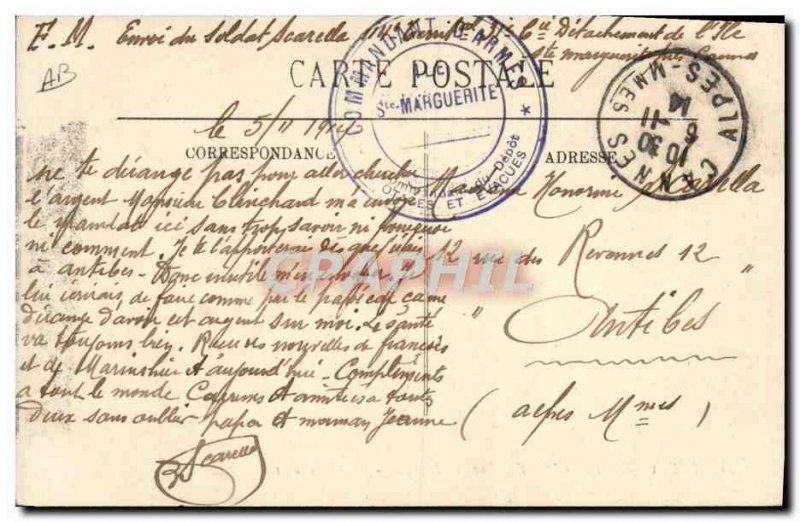 F. M. Envoi du Soldat Scarella 114e Cie Détachement de l'Ile
Ste Marguerite Cannes
AB
CARTE POSTALE
COMMANDANT D'ARMES
Ste. MARGUERITE
du Dépôt
ET EVACUÉS
CANNES
10 30
6 -11
14
ALPES-MMES
le 5/11 1914
CORRESPONDANCE
ADRESSE
ne te dérange pas pour aller chercher
l'argent Monsieur Clinchand m'a envoyé
le mandat ici sans trop savoir ni pourquoi
ni comment. Je te l'apporterai dès que j'irai
à antibes - Donc inutile
lui écrivais de faire comme par le passé car ça me
dérange d'avoir cet argent sur moi. La santé
va toujours bien. Reçu des nouvelles de françois
et de aujourd'hui - Compliments
a tout le monde Caresses et amitiés a toutes
Deux sans oublier papa et maman Jeanne
Scarella
Madame Honorine Scarella
12 rue des Revennes 12
Antibes
(alpes Mmes)
CPAPHIL